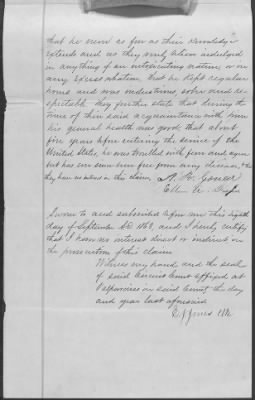 that he never as far as their knowledge
extends and as they verily believe indulged
in anything of an intoxicating nature or in
any excess whatever, that he kept regular
hours and was industrious, sober and re-
spectable they further state that during the
time of their said acquaintance with him
his general health was good, that about
five years before entering the service of the
United States, he was troubled with fever and ague
but has ever since been free from any disease, & that
they have no interest in this claim,
Sworn to and subscribed before me this eighth
day of September AD 1863, and I hereby certify
that I have no interest direct or indirect in
the prosecution of this claim
Witness my hand and the seal
of said Circuit Court affixed at
in said County the day
and year last aforesaid